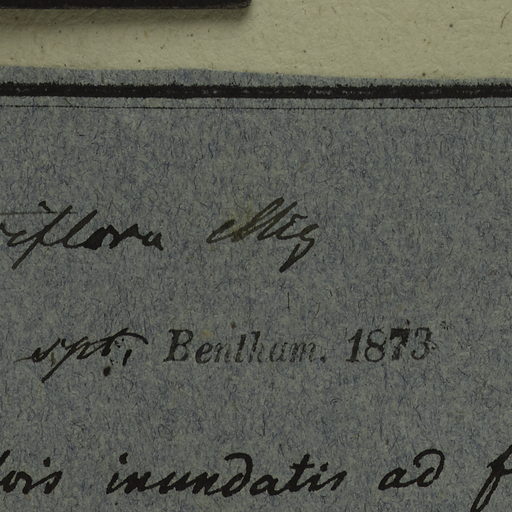 iflora Meg
spt. Bentham. 1873
inundatis ad f